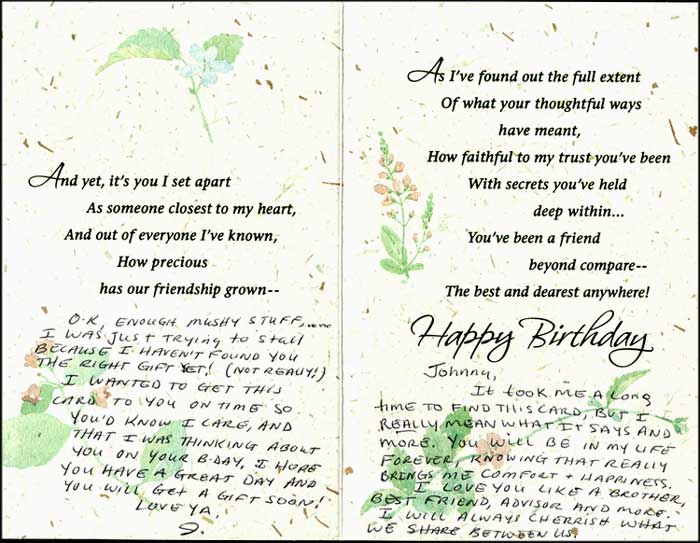 And yet, it's you I set apart
As someone closest to my heart,
And out of everyone I've known,
How precious
has our friendship grown--
O.K. ENOUGH MUSHY STUFF,......
I WAS JUST TRYING TO STALL
BECAUSE I HAVEN'T FOUND YOU
THE RIGHT GIFT YET! (NOT REALLY!)
I WANTED TO GET THIS
CARD TO YOU ON TIME SO
YOU'D KNOW I CARE, AND
THAT I WAS THINKING ABOUT
YOU ON YOUR B-DAY. I HOPE
YOU HAVE A GREAT DAY AND
YOU WILL GET A GIFT SOON!
LOVE YA,
J.
As I've found out the full extent
Of what your thoughtful ways
have meant,
How faithful to my trust you've been
With secrets you've held
deep within...
You've been a friend
beyond compare--
The best and dearest anywhere!
Happy Birthday
Johnny,
IT TOOK ME A LONG
TIME TO FIND THIS CARD, BUT I
REALLY MEAN WHAT IT SAYS AND
MORE. YOU WILL BE IN MY LIFE
FOREVER, KNOWING THAT REALLY
BRINGS ME COMFORT + HAPPINESS.
I LOVE YOU LIKE A BROTHER,
BEST FRIEND, ADVISOR AND MORE.
I WILL ALWAYS CHERISH WHAT
WE SHARE BETWEEN US.